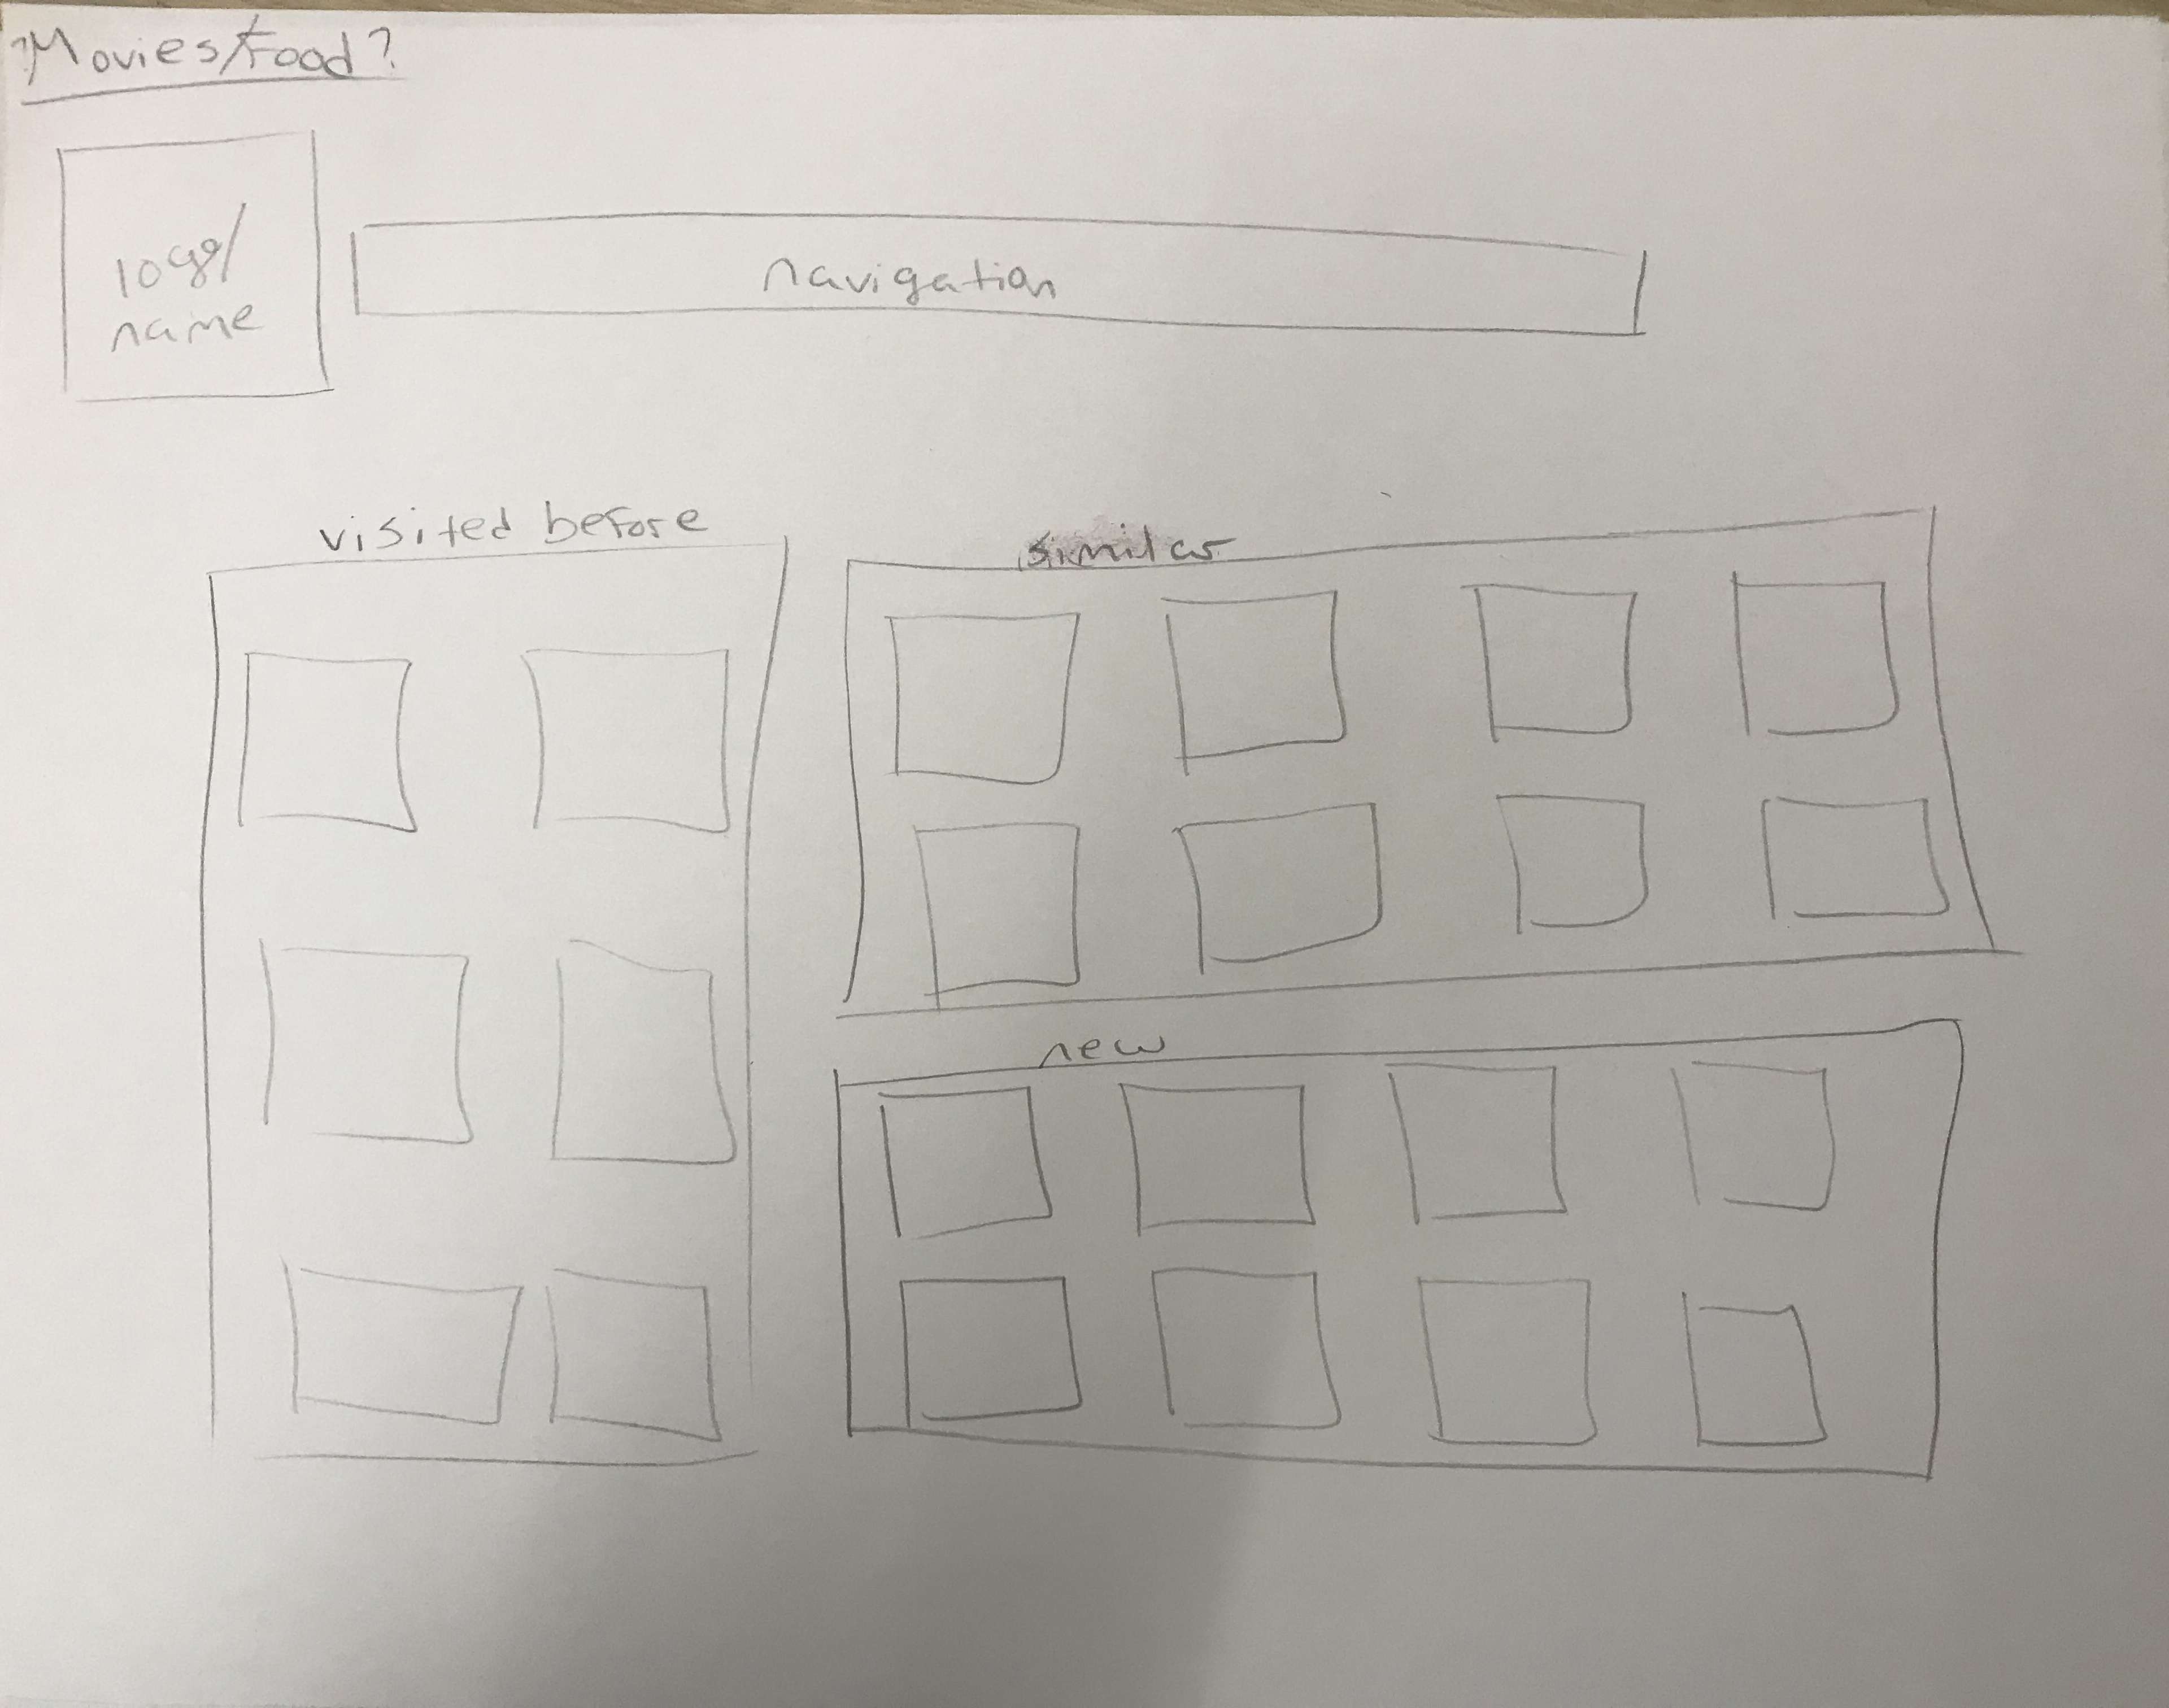 Movies/Food?
logo/
name
navigation
visited before
similar
new